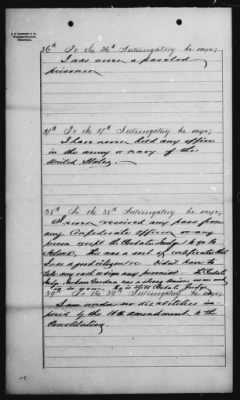 36th To the 36th Interrogatory he says;
I was never a paroled
prisoner
37th To the 37th Interrogatory he says;
I have never held any office
in the army or navy of the
United States.
38th To the 38th Interrogatory he says;
I never received any pass from
any Confederate Officer or any
person except the Probate Judge to go to
this was a sort of certificate that
I was a good citizen &c. Didn't have to
take any oath or sign any promises
Judge
Probate Judge
39th To the 39th Interrogatory he says;
I am under no disabilities im-
posed by the 14th amendment to the
Constitution.